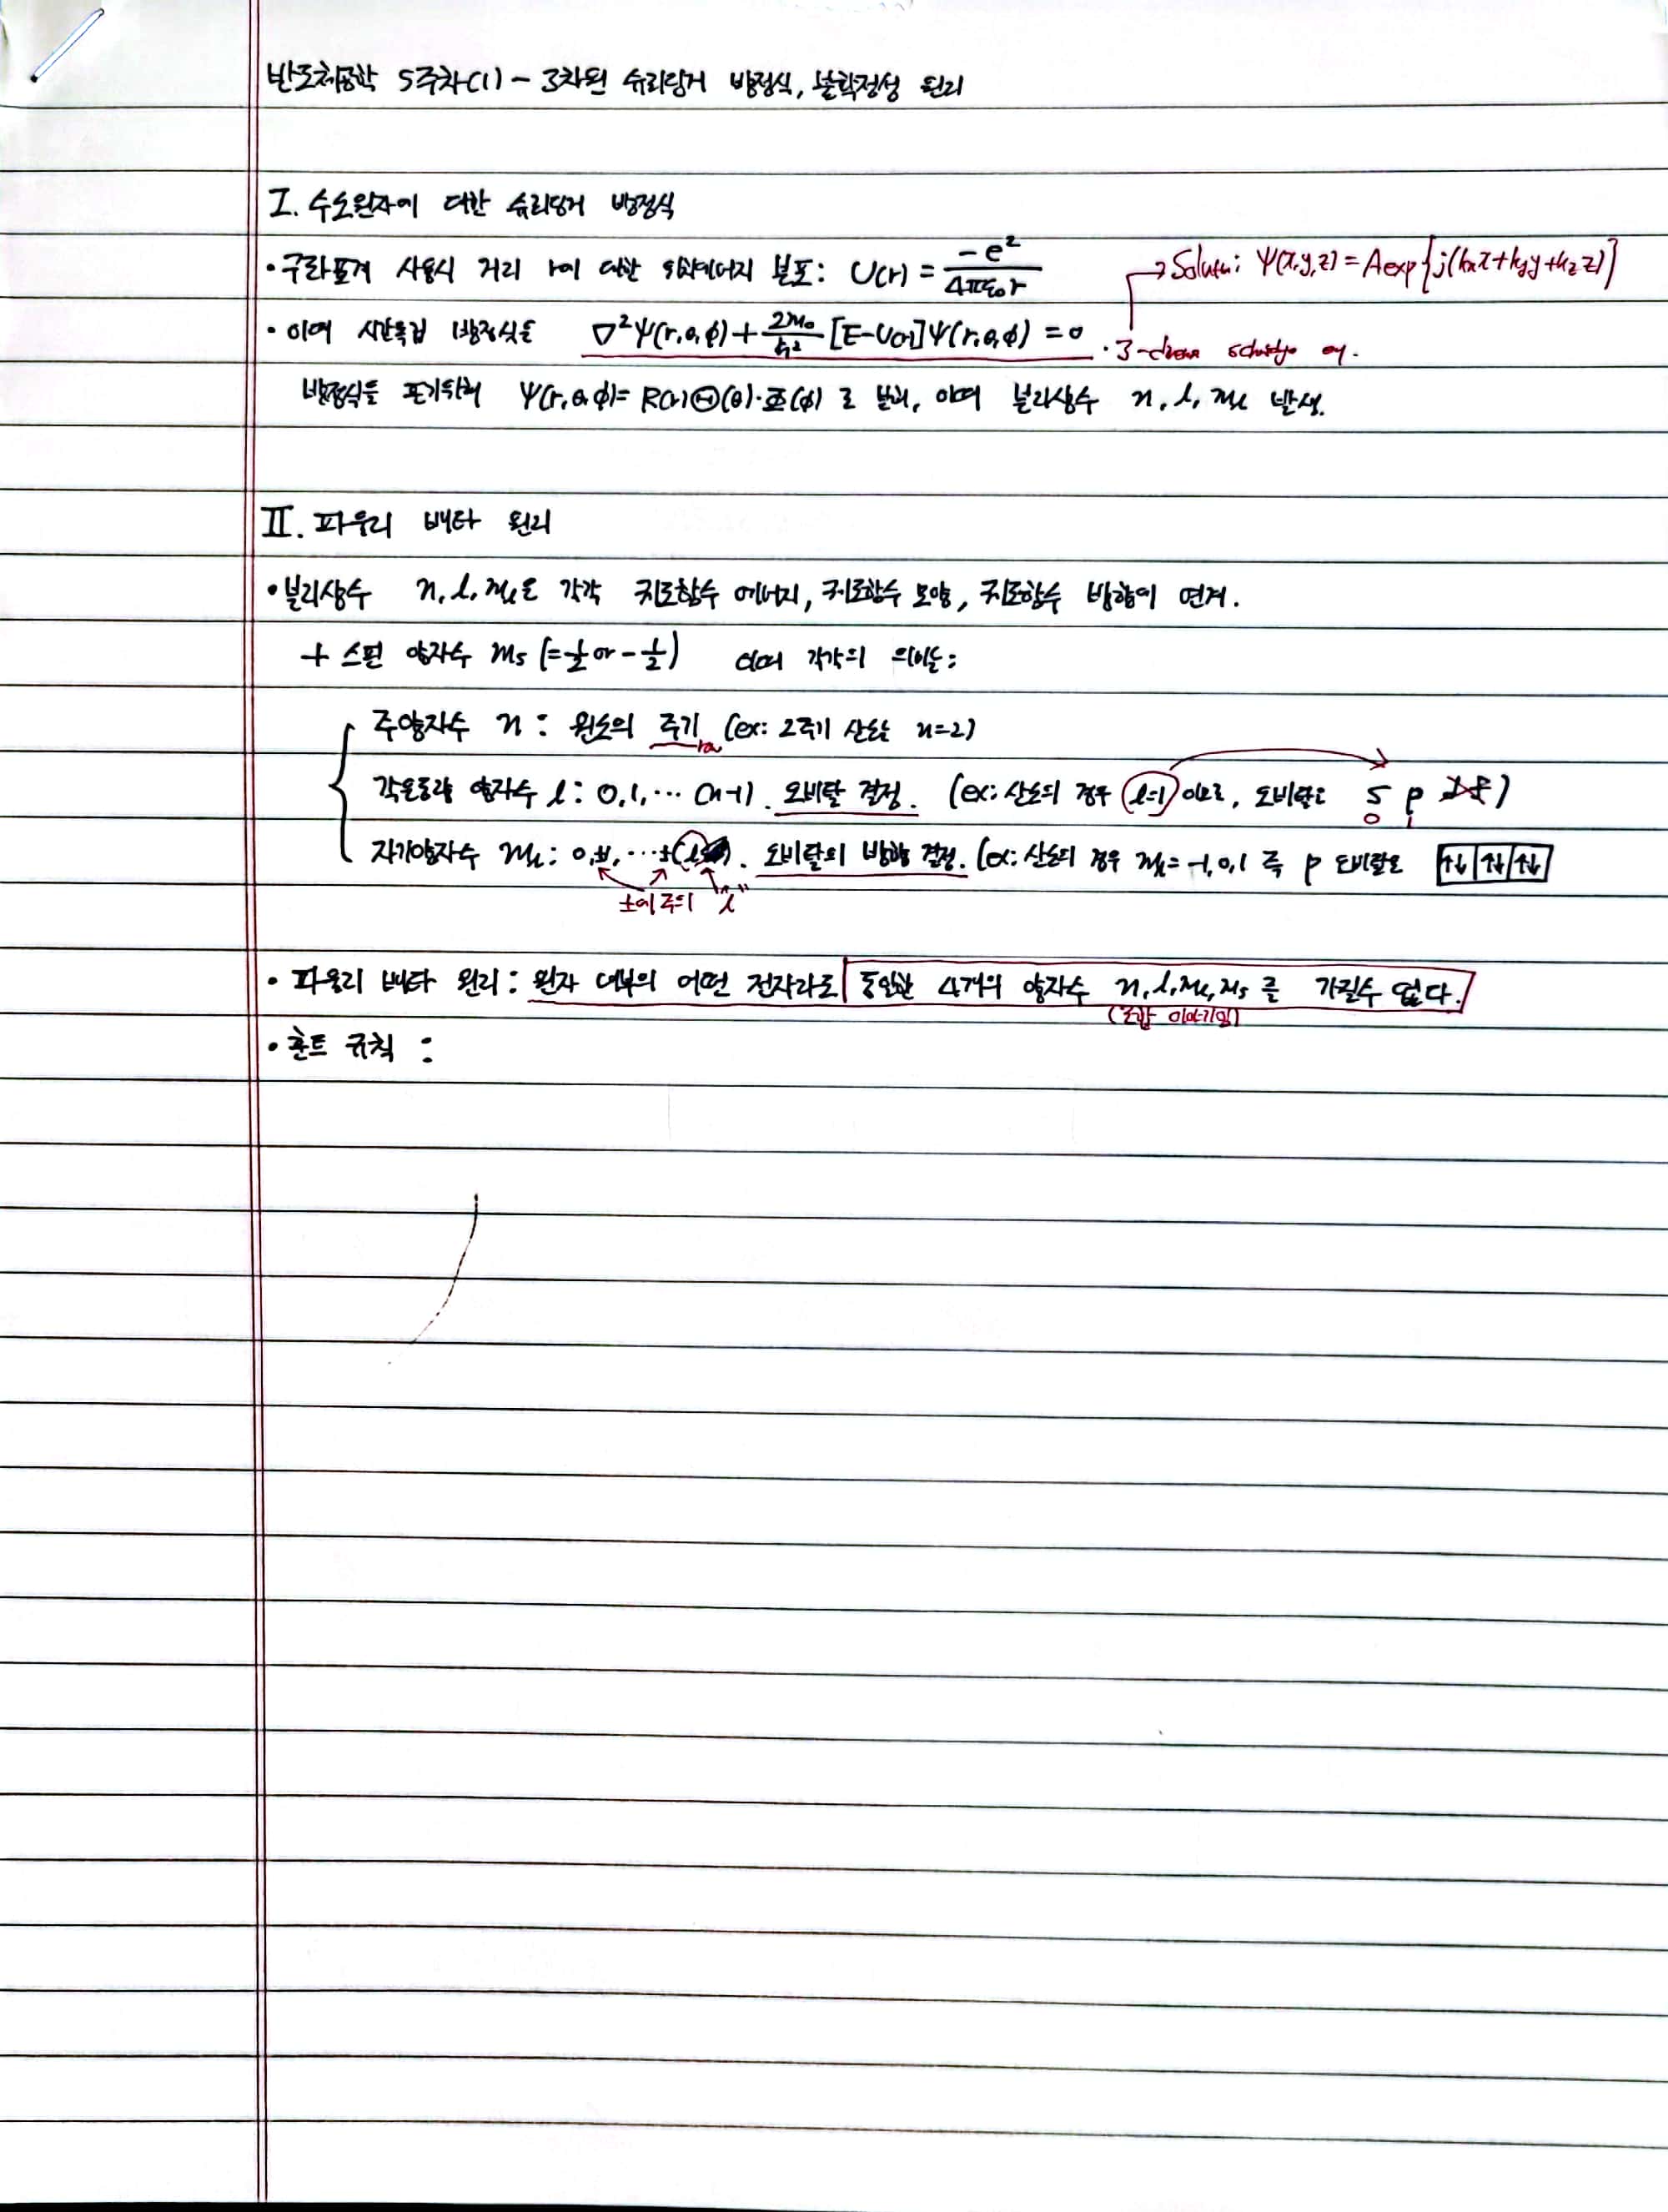 반도체공학 5주차(1) - 3차원 슈뢰딩거 방정식, 불확정성 원리
I. 수소원자에 대한 슈뢰딩거 방정식
• 구좌표계 사용시 거리 r에 대한 위치에너지 분포: U(r) = -e² / 4πε₀r
→ Solution: Ψ(x,y,z) = A exp{j(kₓx+k_yy+k_zz)}
• 이때 시간독립 방정식은 ∇²Ψ(r,θ,ϕ) + 2m₀/ħ² [E-U(r)]Ψ(r,θ,ϕ) = 0 . 3-dimen schrödinger eq.
방정식을 풀기위해 Ψ(r,θ,ϕ) = R(r)Θ(θ)·Φ(ϕ) 로 분리, 이때 분리상수 n, l, m_l 발생.
II. 파울리 배타 원리
• 분리상수 n, l, m_l은 각각 궤도함수 에너지, 궤도함수 모양, 궤도함수 방향에 연계.
+ 스핀 양자수 m_s (=½ or -½) 이때 각각의 의미는:
주양자수 n : 원소의 주기 (ex: 2주기 산소는 n=2)
각운동량 양자수 l : 0, 1, ⋯ (n-1) . 오비탈 결정. (ex: 산소의 경우 l=1 이므로, 오비탈은 s p d f)
0 1
자기양자수 m_l : 0, ±1, ⋯ ±(l). 오비탈의 방향 결정. (ex: 산소의 경우 m_l = -1, 0, 1 즉 p 오비탈은 ↑↓ ↑↓ ↑↓
±에 주의 "l"
• 파울리 배타 원리 : 원자 내부의 어떤 전자라도 동일한 4개의 양자수 n, l, m_l, m_s 를 가질수 없다.
(조합 이야기임)
• 훈트 규칙 :